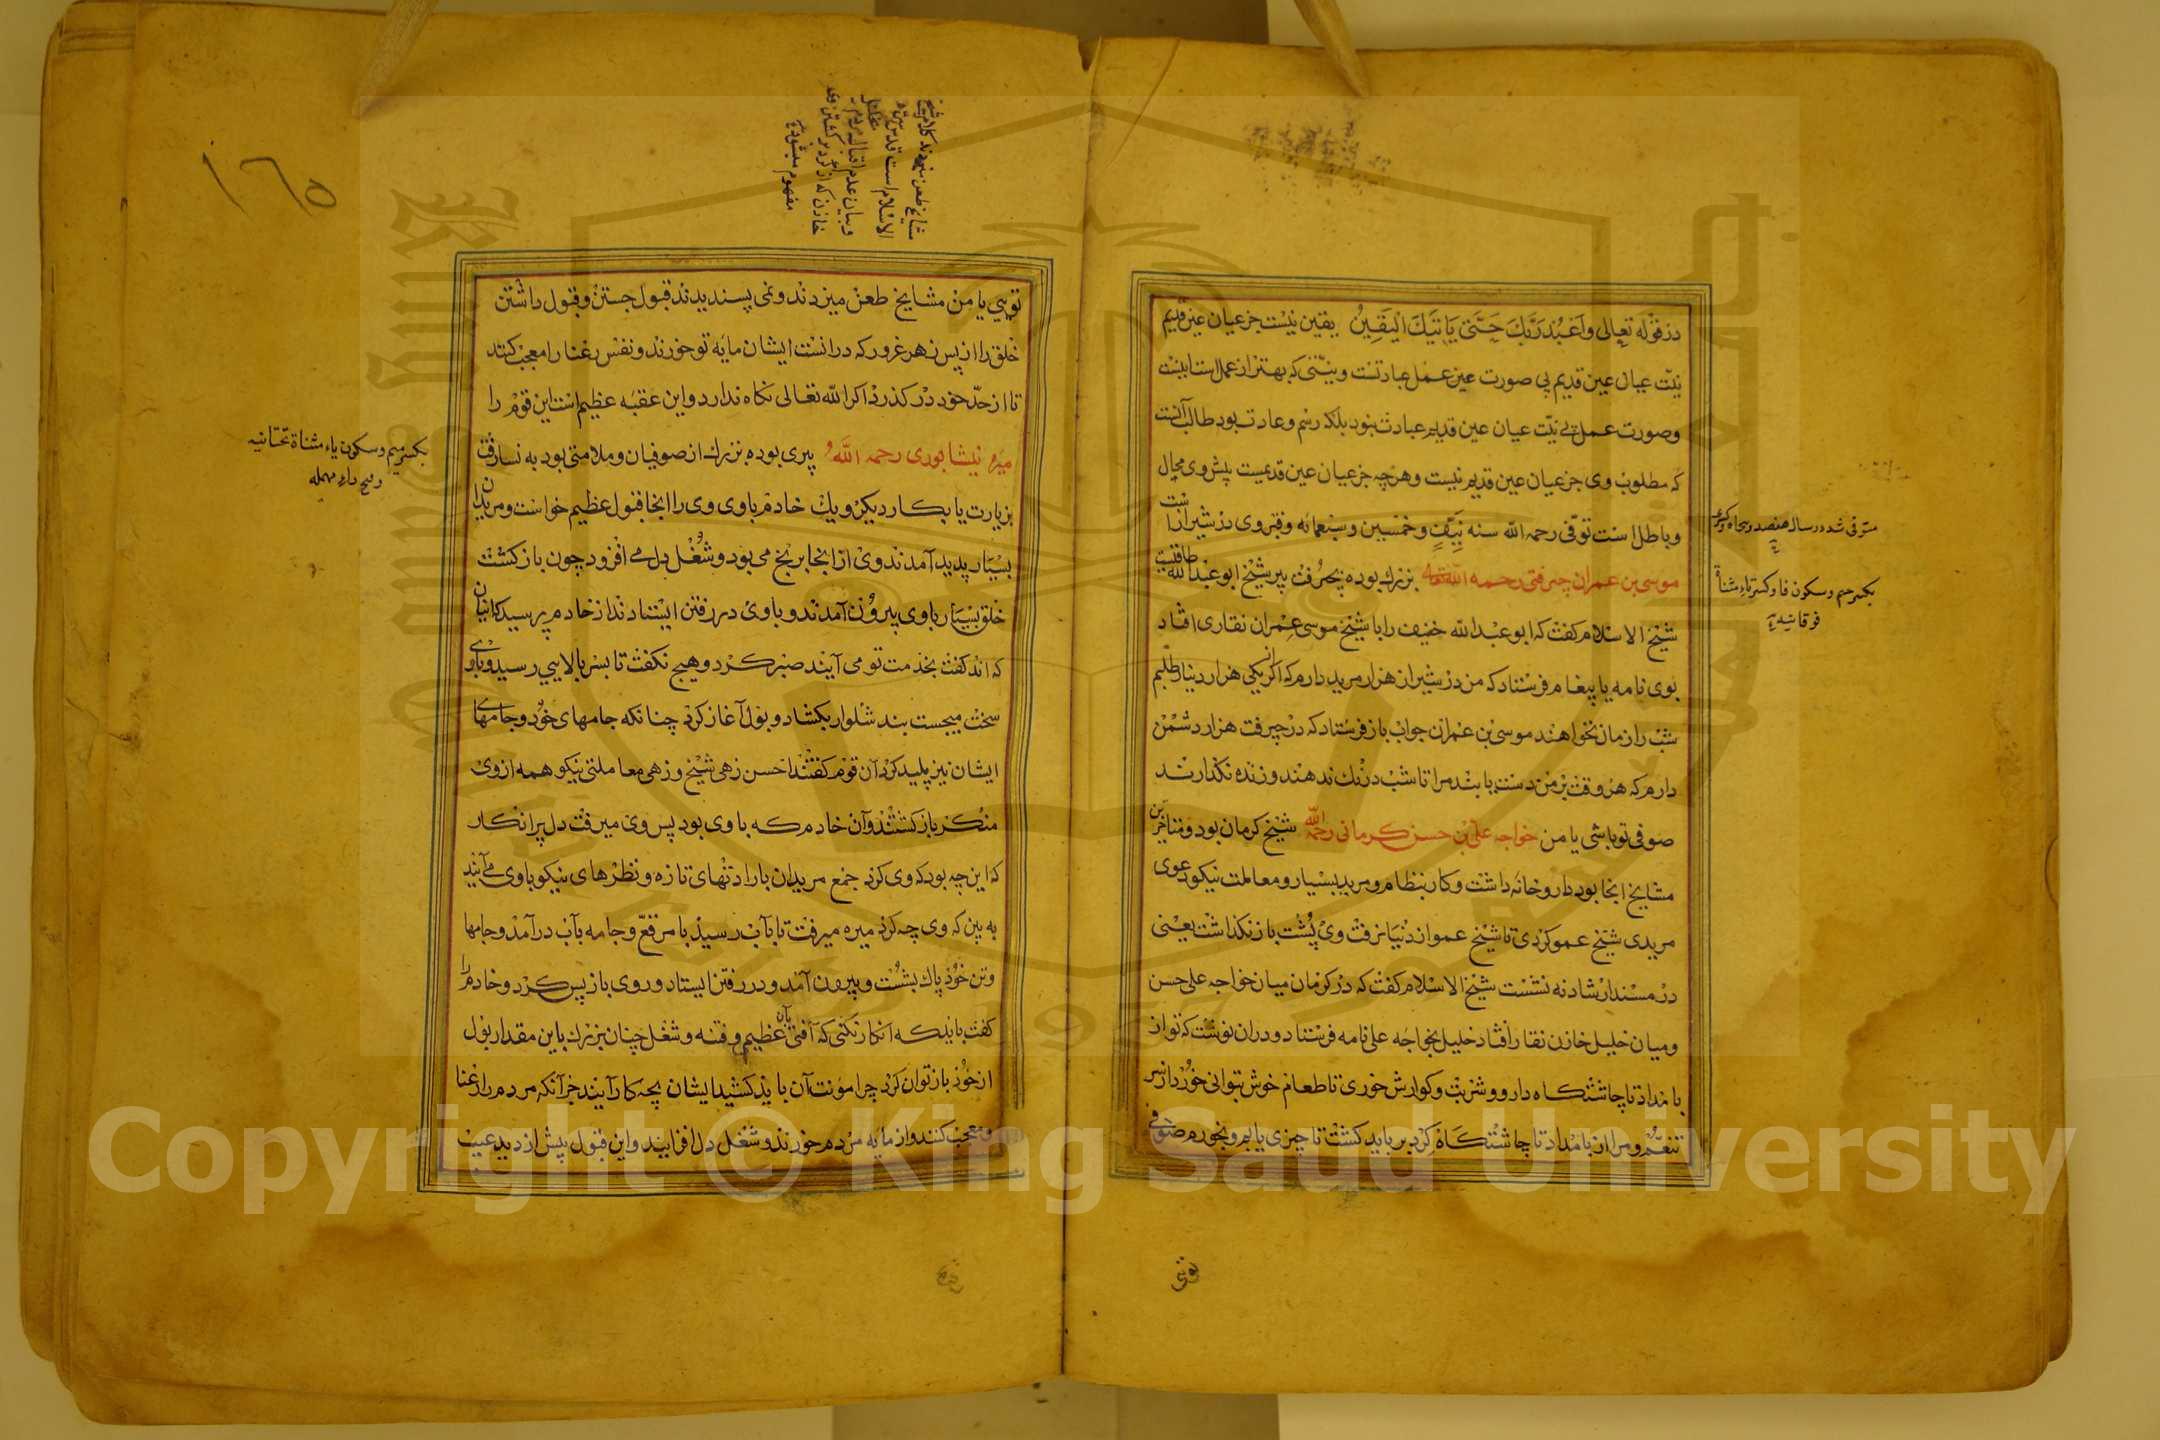 در قوله تعالی وَاعْبُدْ رَبَّكَ حَتَّى يَأْتِيَكَ الْيَقِينُ یقین نیست جز عیان عین قدیم
نیّت عیان عین قدیم پی صورت عین عمل عبادتست و نیّتی که بهتر از عمل است اینست
وصورت عمل بی نیّت عیان عین قدیم عبادت نبود بلکه رسم وعادت بود طالب آنست
که مطلوب وی جز عیان عین قدیم نیست وهرچه جز عیان عین قدیمست پیش وی محال
وباطل است توفّی رحمه الله سنه نیّف وخمسین وسبعمائه وقبر وی در شیراز است
موسی بن عمران جیرفتی رحمه الله تعالی بزرک بوده بجیرفت پیر شیخ ابو عبدالله طاقیست
شیخ الاسلام کفت که ابو عبدالله خفیف را با شیخ موسی عمران نقاری افتاد
بوی نامه یا پیغام فرستاد که من در شیراز هزار مرید دارم که اکر از یکی هزار دینار طلبم
شب را زمان نخواهند موسی بن عمران جواب باز فرستاد که در جیرفت هزار دشمن
دارم که هر وقت بر من دست یابند مرا تا شب درنك ندهند وزنده نکذارند
صوفی تو باشی یا من خواجه علی بن حسن کرمانی رحمه الله شیخ کرمان بود ومتاخرین
مشایخ انجا بود دار وخانه داشت وکار بنظام ومرید بسیار ومعاملت نیکو دعوی
مریدی شیخ عمو کردی تا شیخ عمو از دنیا نرفت وی پشت باز نکذاشت یعنی
در مسند ارشاد نه نشست شیخ الاسلام کفت که در کرمان میان خواجه علی حسن
ومیان خلیل خازن نقار افتاد خلیل بخواجه علی نامه فرستاد ودران نوشت که تو از
بامداد تا چاشتکاه دارو وشربت وکوارش خوری تا طعام خوش بتوانی خورد از سر
تنعّم ومرا از بامداد تا چاشتکاه کرد بر باید کشت تا چیزی یابم وبخورم صوفی
متوفی شد در سال هفصد وپنجاه وکسری
بکسر جیم وسکون فا وکسر تاء مثناة
فوقانیه
توئی
توئی یا من مشایخ طعن میزدند ونمی پسندیدند قبول جستن وقبول داشتن
خلق را از پس زهر غرور که درانست ایشان مایه تو خورند ونفس رعنا را معجب کنند
تا از حدّ خود در کذرد اکر الله تعالی نکاه ندارد واین عقبه عظیم است این قوم را
میره نیشابوری رحمه الله و پیری بوده بزرك از صوفیان وملامتی بود به نسا رفت
بزیارت یا بکار دیکر ویك خادم با وی وی را انجا قبول عظیم خواست ومریدان
بسیار پدید آمدند وی از انجا برنج می بود وشغل دل می افزود چون باز کشت
خلق بسیار با وی بیرون آمدند وبا وی در رفتن ایستادند از خادم پرسید که اینان
که اند کفت بخدمت تو می آیند صبر کرد وهیچ نکفت تا بسر بالایی رسید وبادی
سخت میجست بند شلوار بکشاد وبول آغاز کرد چنانکه جامهای خود وجامهای
ایشان نیز پلید کرد آن قوم کفتند احسن زهی شیخ وزهی معاملتی نیکو همه از وی
منکر باز کشتند وآن خادم که با وی بود پس وی میرفت دل پر انکار
که این چه بود که وی کرد جمع مریدان با ارادتهای تازه ونظرهای نیکو با وی می آیند
به بین که وی چه کرد میره میرفت تا بآب رسید با مرقع وجامه بآب درآمد وجامها
وتن خود پاك بشست وبیرون آمد ودر رفتن ایستاد وروی باز پس کرد وخادم را
کفت باید که انکار نکنی که آفتی بآن عظیم وفتنه وشغل چنان بزرك باین مقدار بول
از خود باز توان کرد چرا مؤنت آن باید کشید ایشان بچه کار آیند جز آنکه مردم را رعنا
ومعجب کنند واز مایه مردم خورند وشغل دل افزایند واین قبول پیش از دید عیب
مشایخ طعن میزدند کلام شیخ
الاسلام است قدس سره
وبیان عدم اقبال مردم بر خلیل
خازن که از کرد بر کشتن وی
مفهوم میشود
بکسر میم وسکون یاء مثناة تحتانیه
وفتح راء مهمله
١٦٥
Copyright © King Saud University